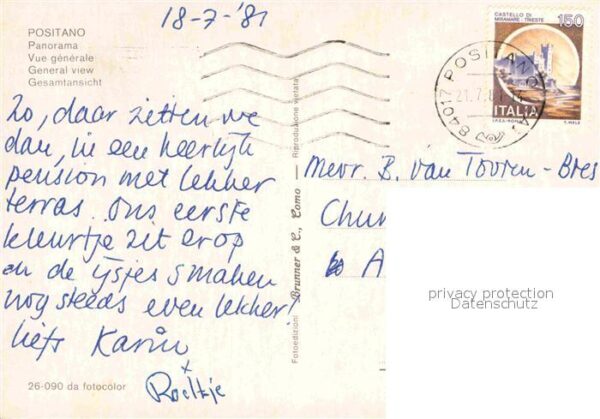 18-7-'81
POSITANO
Panorama
Vue générale
General view
Gesamtansicht
Zo, daar zitten we
dan, in een heerlijk
pension met lekker
terras. Ons eerste
kleurtje zit erop
en de ijsjes smaken
nog steeds even lekker!
liefs Karin
+
Roeltje
26-090 da fotocolor
Fotoedizioni Brunner & C., Como — Riproduzione vietata
CASTELLO DI
MIRAMARE - TRIESTE
150
ITALIA
I.P.Z.S.-ROMA
84017 POSITANO
21.7.81
Mevr. B. van Tooren-Bres
Chur
A
privacy protection
Datenschutz